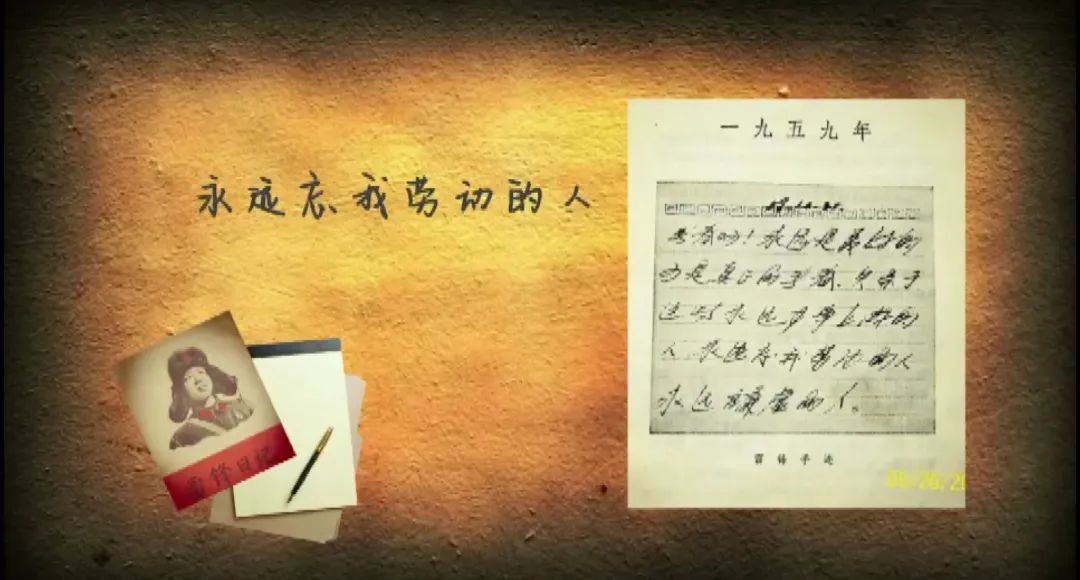 永远忘我劳动的人
一九五九年
青春啊！永远是美好的
可是真正的青春，只属于
这些永远力争上游的
人，永远忘我劳动的人
永远谦虚的人。
雷锋手迹
雷锋日记